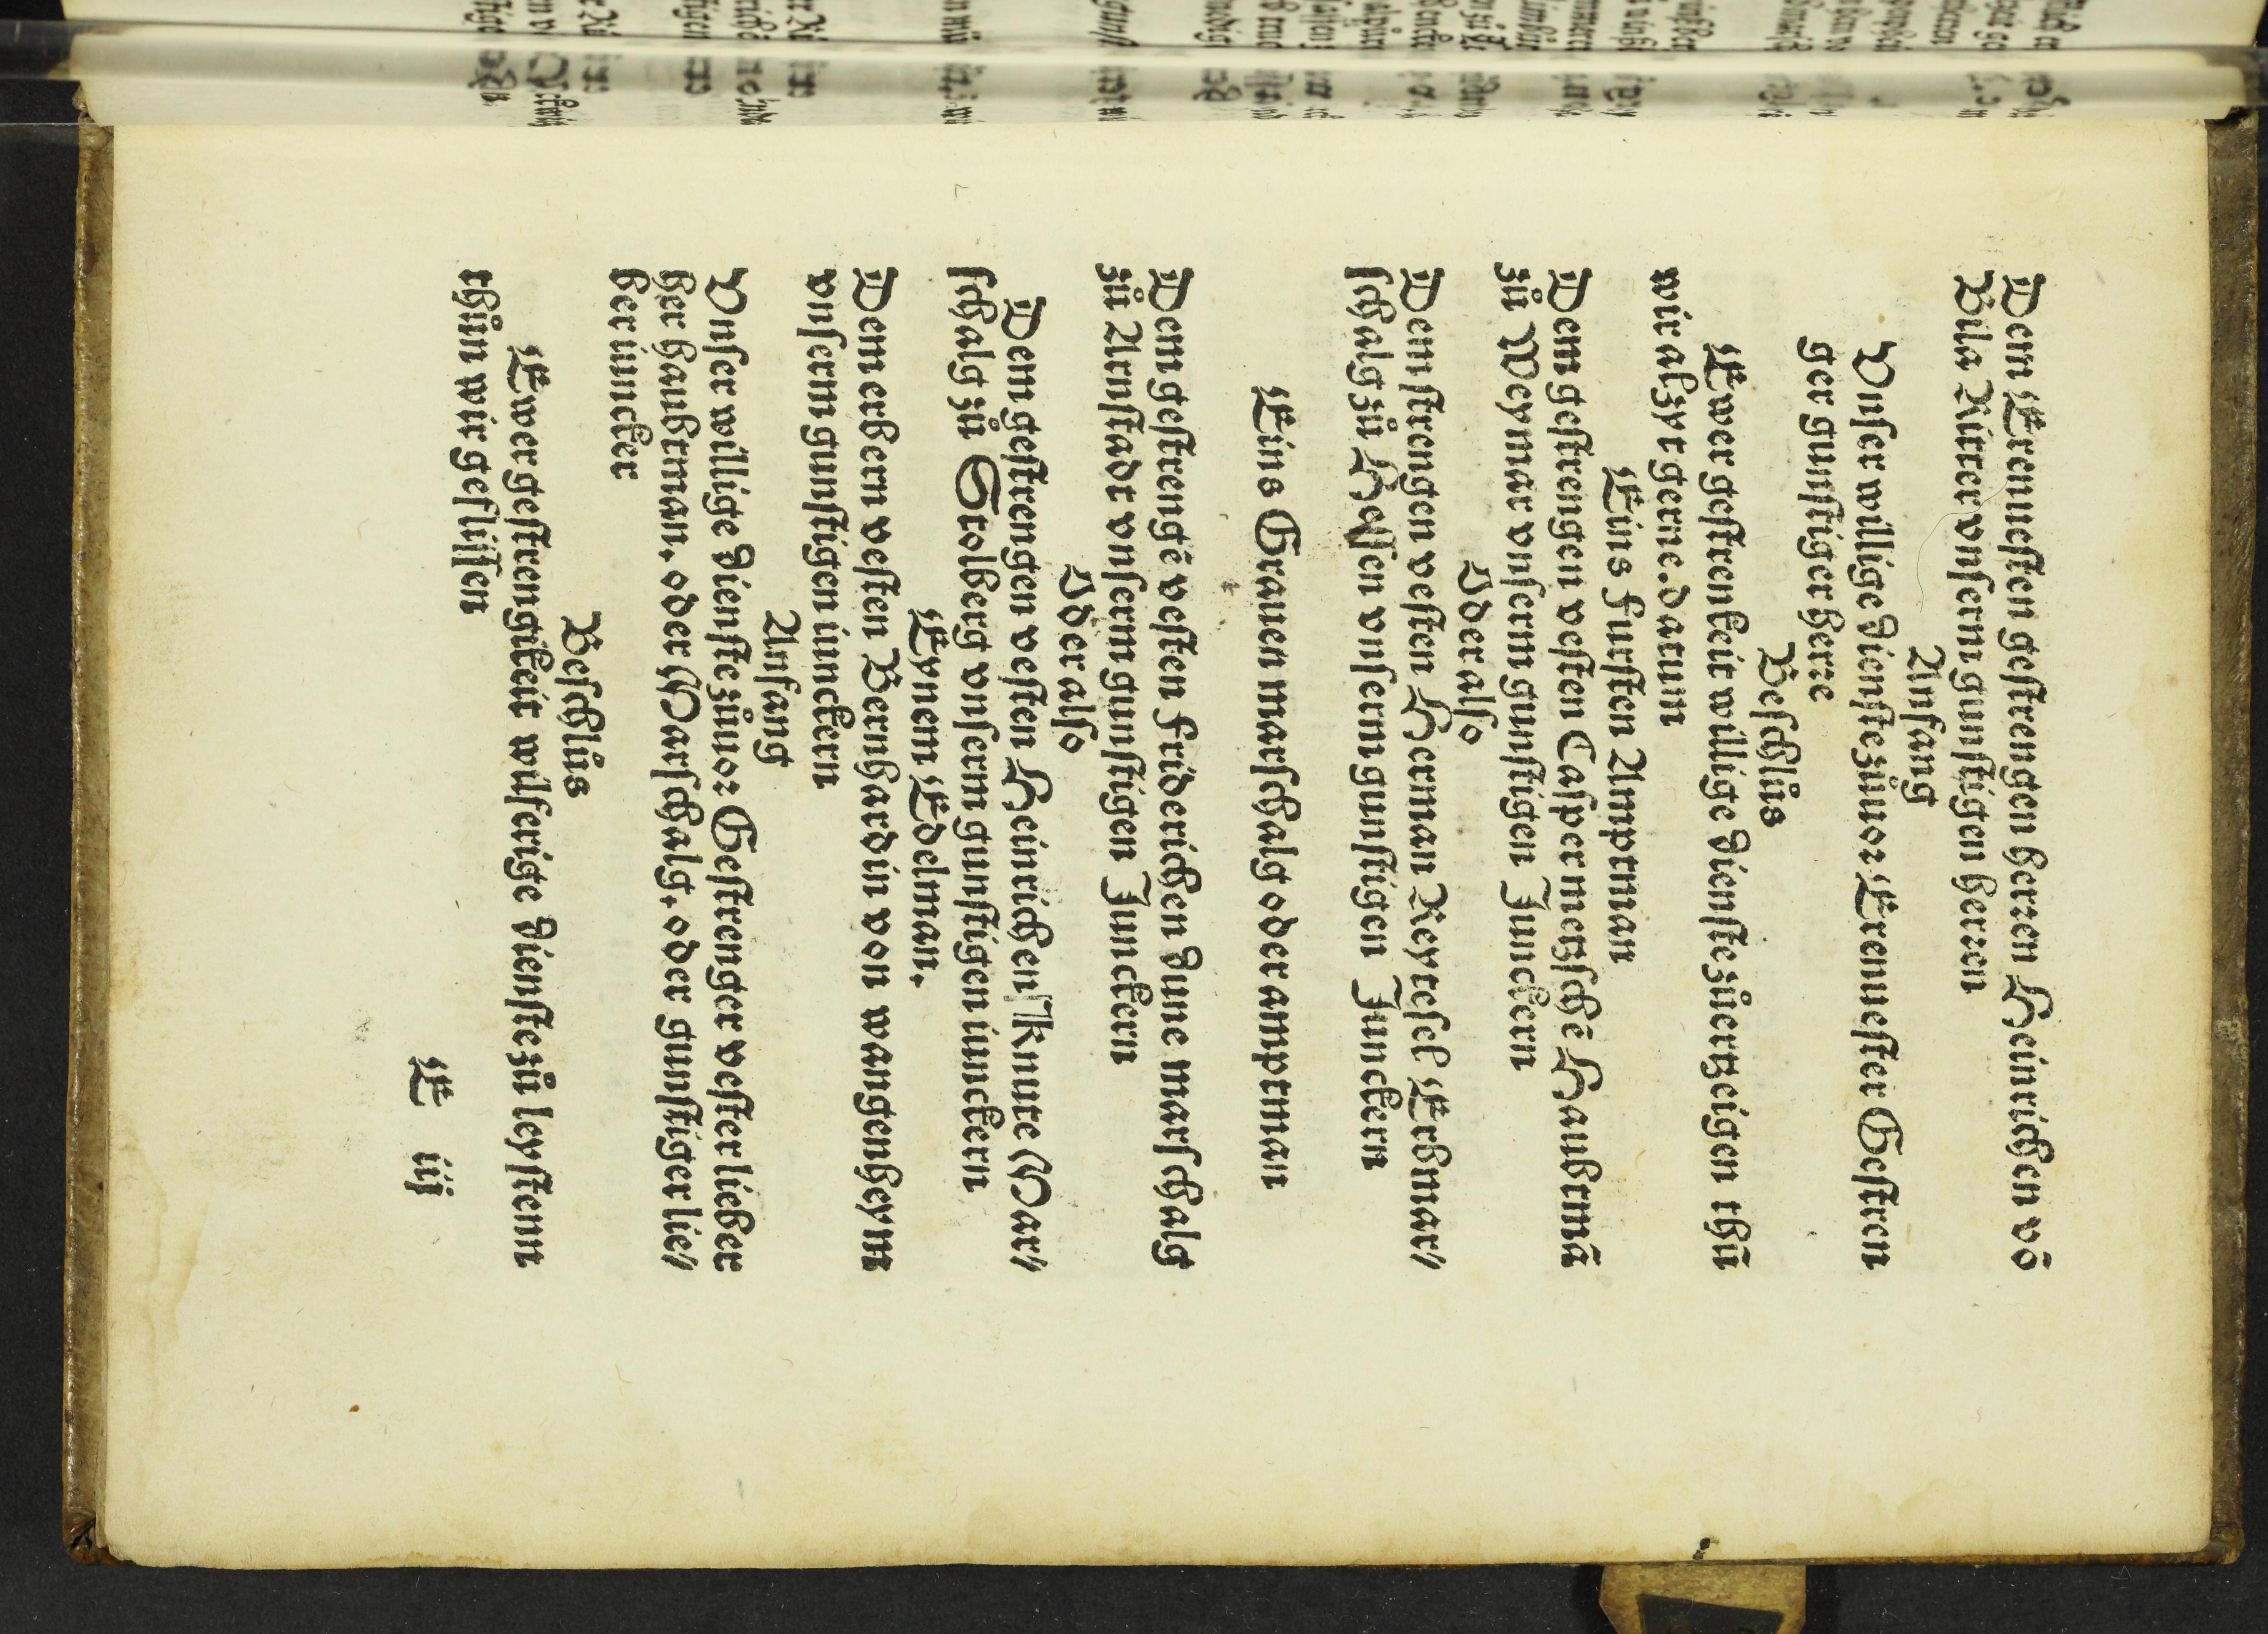 Dem Erennesten gestrengen herren Heinrichen vō
Bila Ritter vnserm gunstigen herren
Anfang
Vnser willige dienste zůuor Erennester Gestren
ger gunstiger herre
Beschlůs
Ewer gestrenkeit willige dienste zůertzeigen thū
wir alzyt gerne. datum
Eins fursten Amptman
Dem gestrengen vesten Casper metzschē Haubtmā
zů Weymar vnserm gunstigen Junckern
Oder also
Dem strengen vesten Herman Reytesel Erbmar⸗
schalg zů Hessen vnserm gunstigen Junckern
Eins Grauen marschalg oder amptman
Dem gestrengē vesten friderichen dune marschalg
zů Arnstadt vnserm gunstigen Junckern
Oder also
Dem gestrengen vesten Heinrichen knutte Mar⸗
schalg zů Stolberg vnserm gunstigen iunckern
Eynem Edelman.
Dem erbern vesten Bernhardin von wangenheym
vnserm gunstigen iunckern
Anfang
Vnser willige dienste zůuor Gestrenger vester lieber
her haubtman. oder Marschalg. oder gunstiger lie⸗
ber iuncker
Beschlůs
Ewer gestrengikeit wilferige dienste zů leystenn
thůn wir geflissen
E iij